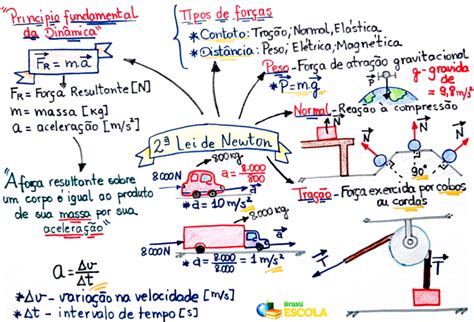 "Princípio fundamental
da Dinâmica"
F_R = m.a
F_R = Força Resultante [N]
m = massa [kg]
a = aceleração [m/s²]
"A força resultante sobre
um corpo é igual ao produto
de sua massa por sua
aceleração"
a = Δv
Δt
*Δv - variação na velocidade [m/s]
*Δt - intervalo de tempo [s]
Tipos de forças
*Contato: Tração, Normal, Elástica
*Distância: Peso, Elétrica, Magnética
Peso - Força de atração gravitacional
*P = m.g
P
P
g - gravida
de
= 9,8 m/s²
Normal - Reação à compressão
N
N
N
N
90°
2ª Lei de Newton
800kg
8000N
a
*a = 8.000
800
*a = 10 m/s²
8.000 kg
8000N
a
*a = 8.000
8.000
= 1 m/s²
Tração - Força exercida por cabos
ou cordas
T
T
Brasil
ESCOLA